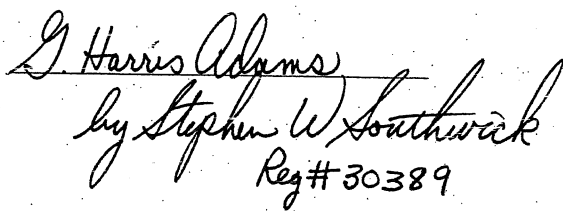 G. Harris Adams
by Stephen W Southwick
Reg# 30389